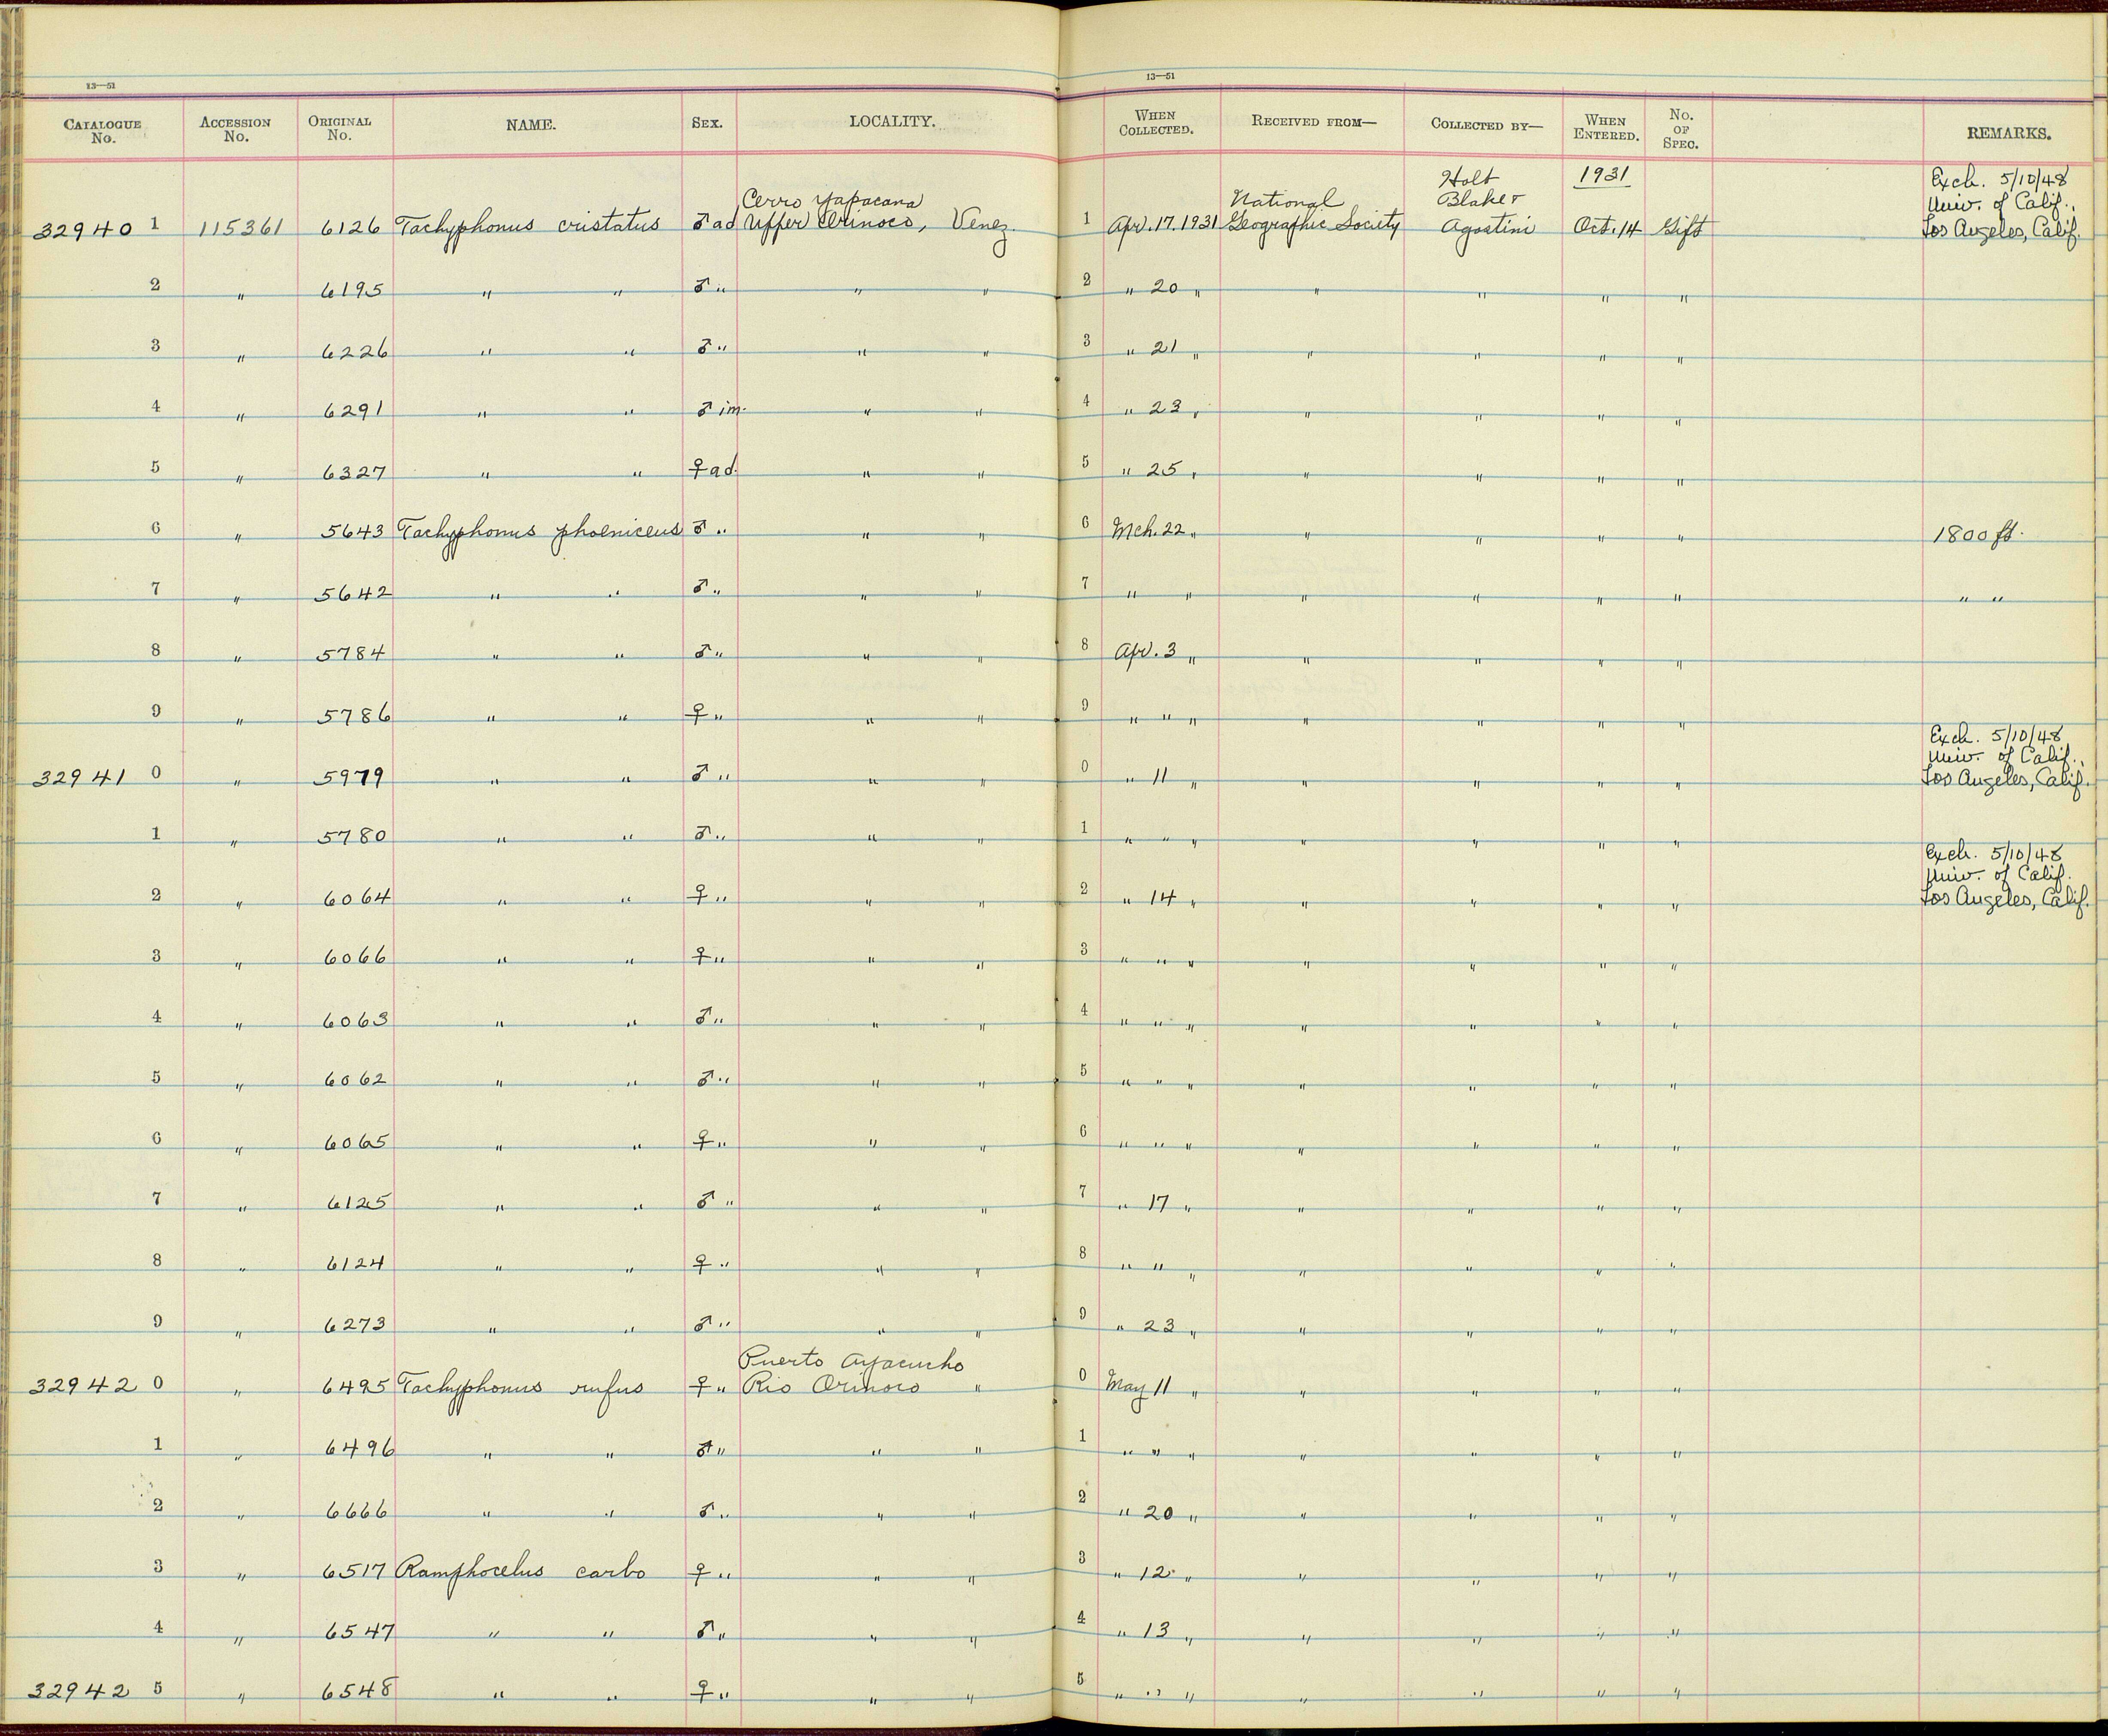 13—51
13—51
CATALOGUE No. ACCESSION No. ORIGINAL No. NAME. SEX. LOCALITY. WHEN COLLECTED. RECEIVED FROM— COLLECTED BY— WHEN ENTERED. No. OF SPEC. REMARKS.
Holt 1931 Exch. 5/10/48
Cerro Yapacana National Blaker Univ. of Calif.,
32940 1 115361 6126 Tachyphonus cristatus ♂ ad Upper Orinoco, Venez. 1 Apr. 17. 1931 Geographic Society Agostini Oct. 14 Gift Los Angeles, Calif.
2 " 6195 " " ♂ " " " 2 " 20 " " " " "
3 " 6226 " " ♂ " " " 3 " 21 " " " " "
4 " 6291 " " ♂ im. " " 4 " 23 " " " " "
5 " 6327 " " ♀ ad. " " 5 " 25 " " " " "
6 " 5643 Tachyphonus phoeniceus ♂ " " " 6 Mch. 22 " " " " " 1800 ft.
7 " 5642 " " ♂ " " " 7 " " " " " " " "
8 " 5784 " " ♂ " " " 8 Apr. 3 " " " " "
9 " 5786 " " ♀ " " " 9 " " " " " " "
Exch. 5/10/48
Univ. of Calif.,
32941 0 " 5979 " " ♂ " " " 0 " 11 " " " " " Los Angeles, Calif.
1 " 5780 " " ♂ " " " 1 " " " " " " "
Exch. 5/10/48
Univ. of Calif.
2 " 6064 " " ♀ " " " 2 " 14 " " " " " Los Angeles, Calif.
3 " 6066 " " ♀ " " " 3 " " " " " " "
4 " 6063 " " ♂ " " " 4 " " " " " " "
5 " 6062 " " ♂ " " " 5 " " " " " " "
6 " 6065 " " ♀ " " " 6 " " " " " " "
7 " 6125 " " ♂ " " " 7 " 17 " " " " "
8 " 6124 " " ♀ " " " 8 " " " " " " "
9 " 6273 " " ♂ " " " 9 " 23 " " " " "
Puerto Ayacucho
32942 0 " 6495 Tachyphonus rufus ♀ " Rio Orinoco " 0 May 11 " " " " "
1 " 6496 " " ♂ " " " 1 " " " " " " "
2 " 6666 " " ♂ " " " 2 " 20 " " " " "
3 " 6517 Ramphocelus carbo ♀ " " " 3 " 12 " " " " "
4 " 6547 " " ♂ " " " 4 " 13 " " " " "
32942 5 " 6548 " " ♀ " " " 5 " " " " " " "